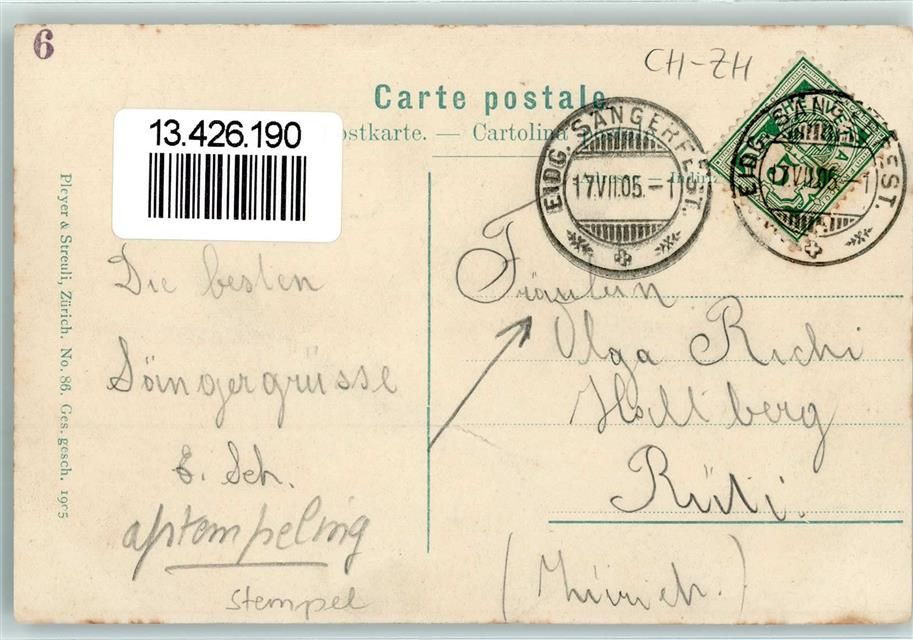 6
CH-ZH
Carte postale
13.426.190
ostkarte. — Cartolina
EIDG. SÄNGERFEST.
17.VII.05.-11
EIDG. SÆNGERFEST.
17.VII.05.-1
Pleyer & Streuli, Zürich. No. 86. Ges. gesch. 1905
Die besten
Sängergrüsse
E. Sch.
Fräulein
Olga Richi
Hallberg
Rüti.
(Zürich.)
stempel